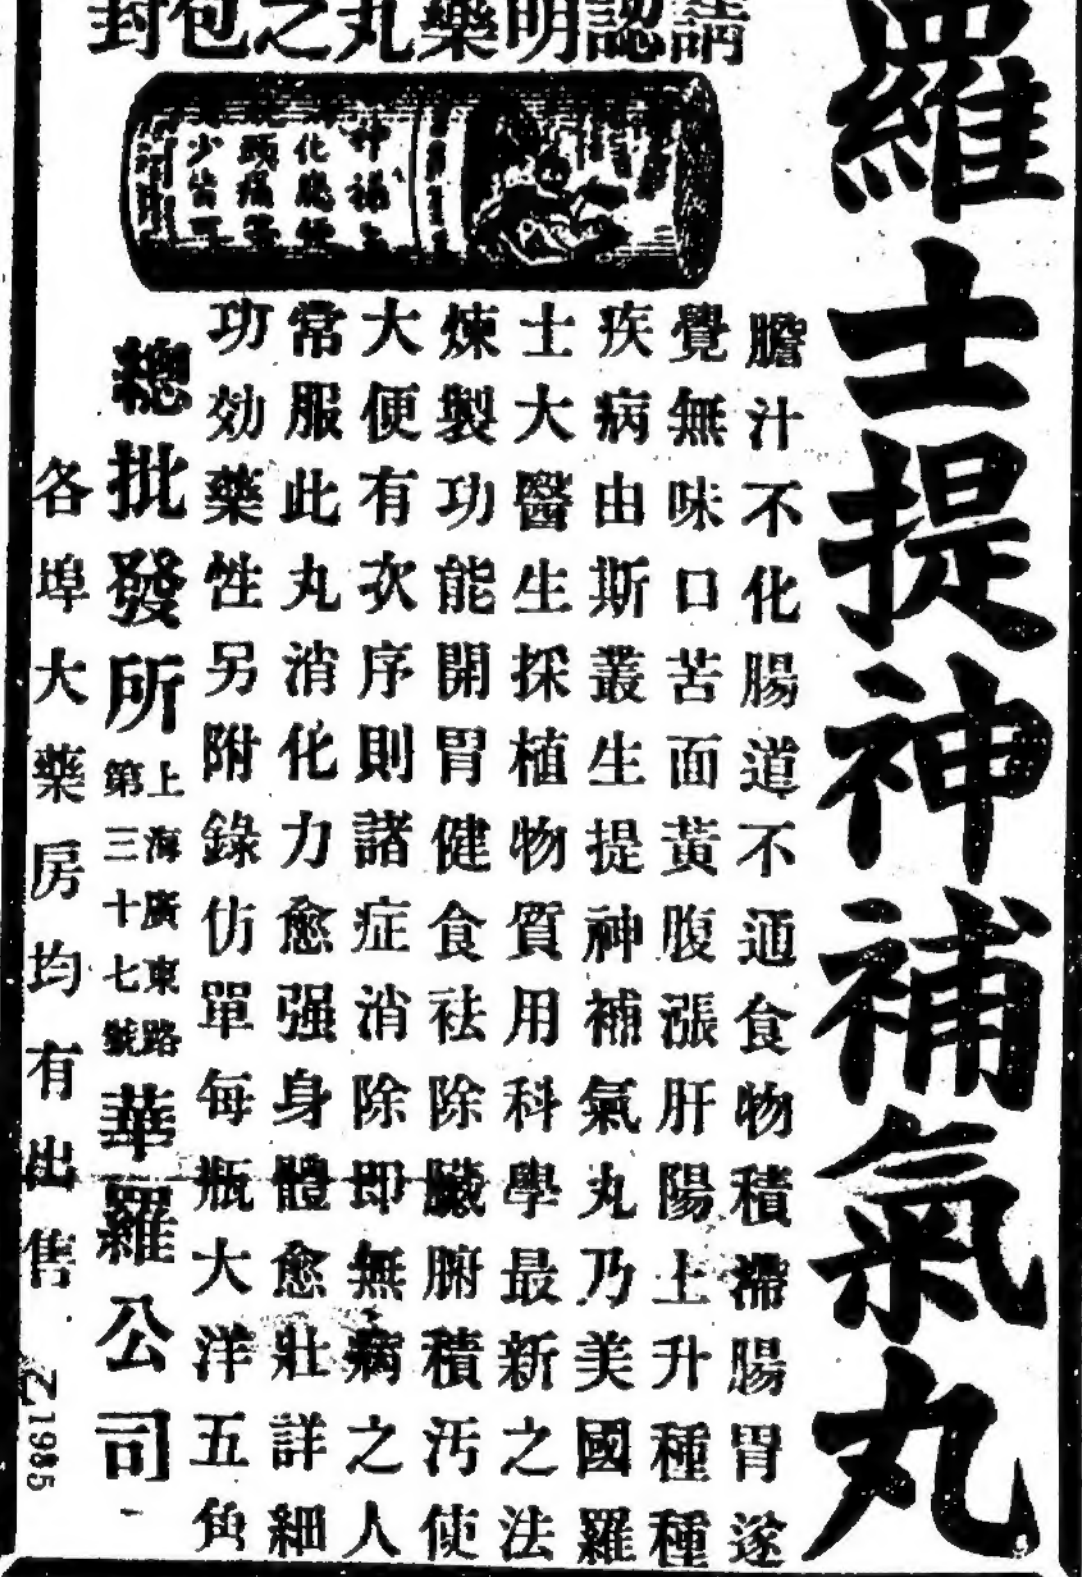 羅士提神補氣丸
請認明藥丸之包封
膽汁不化腸道不通食物積滯腸胃遂
覺無味口苦面黃腹漲肝陽上升種種
疾病由斯叢生提神補氣丸乃美國羅
士大醫生採植物質用科學最新之法
煉製功能開胃健食祛除臟腑積汚使
大便有次序則諸症消除即無病之人
常服此丸消化力愈强身體愈壯詳細
功効藥性另附錄仿單每瓶大洋五角
總批發所
上海廣東路
第三十七號
華羅公司
各埠大藥房均有出售
Z1985